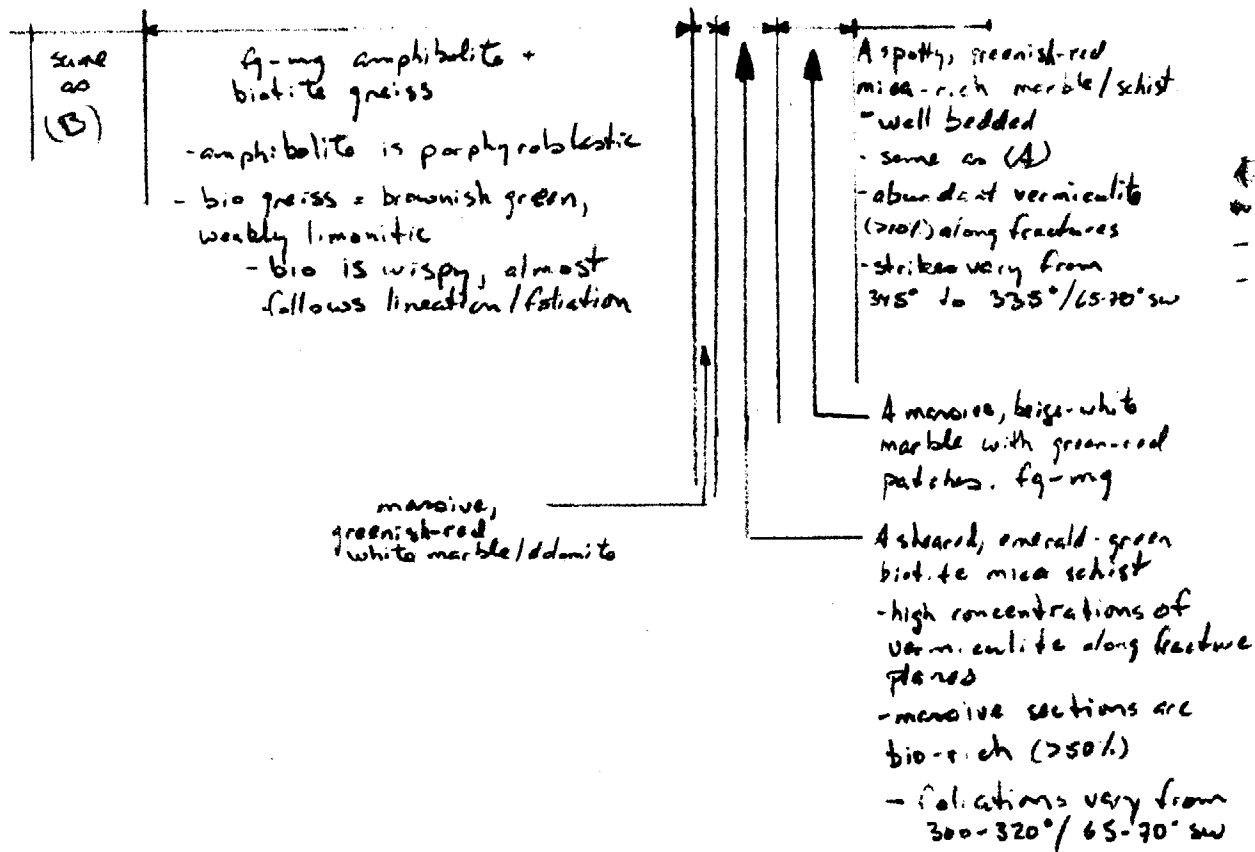 same
as
(B)
fg-mg amphibolite +
biotite gneiss
-amphibolite is porphyroblastic
- bio gneiss = brownish green,
weakly limonitic
- bio is wispy, almost
follows lineation/foliation
massive,
greenish-red
white marble/dolomite
A spotty, greenish-red
mica-rich marble/schist
-well bedded
- same as (A)
-abundant vermiculite
(>10%) along fractures
-strikes vary from
345° to 335°/65-70° sw
A massive, beige-white
marble with green-red
patches. fg-mg
A sheared, emerald-green
biotite mica schist
-high concentrations of
vermiculite along fracture
planes
-massive sections are
bio-rich (>50%)
- foliations vary from
300-320°/65-70° sw